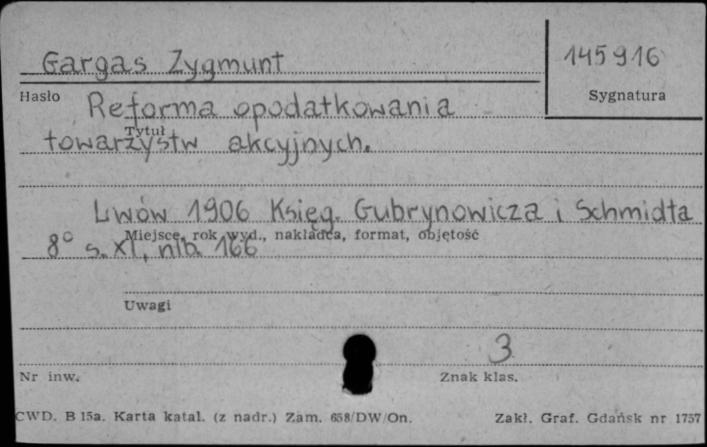 Gargas Zygmunt
145916
Hasło
Sygnatura
Reforma opodatkowania
Tytuł
towarzystw akcyjnych.
Lwów 1906 Księg. Gubrynowicza i Schmidta
Miejsce, rok wyd., nakładca, format, objętość
8° s. XI, nlb. 166
Uwagi
3
Nr inw.
Znak klas.
CWD. B 15a. Karta katal. (z nadr.) Zam. 658/DW/On.
Zakł. Graf. Gdańsk nr 1757